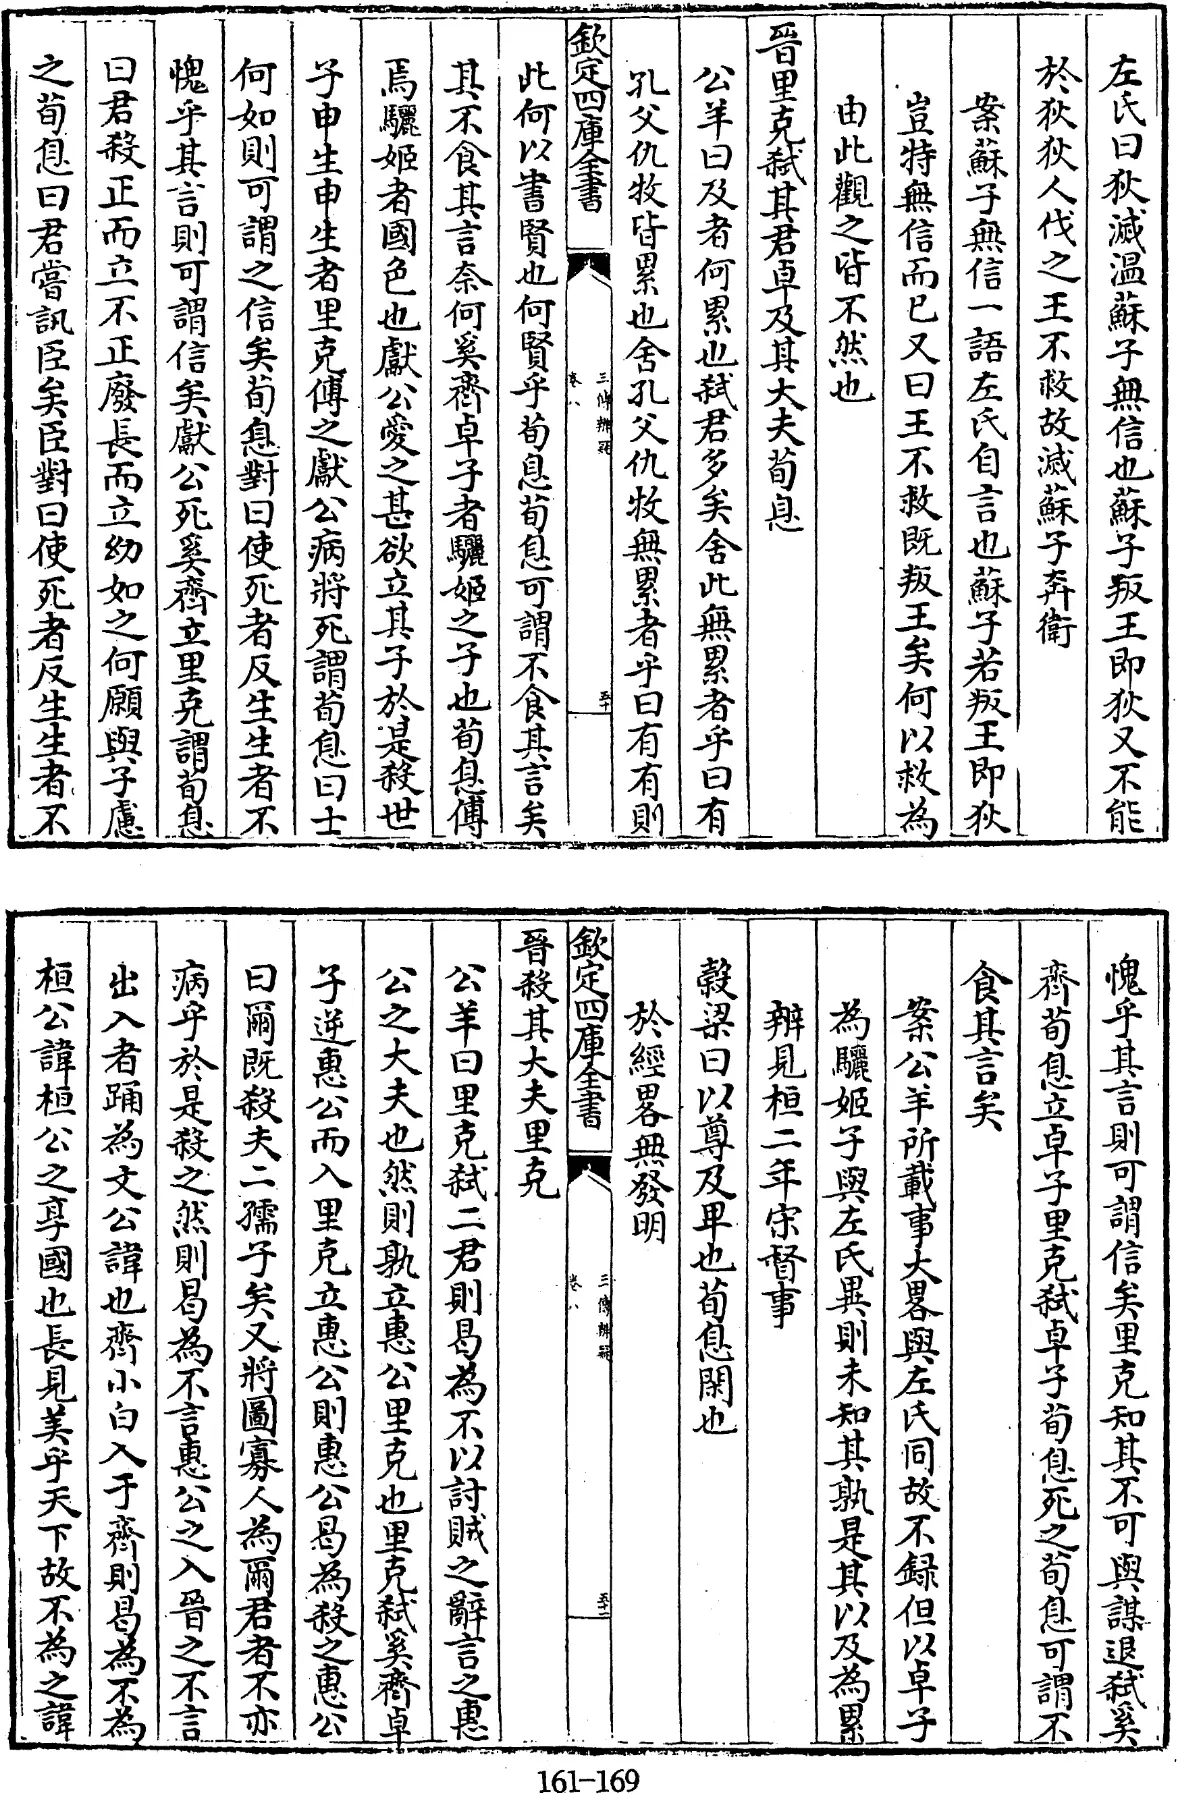 左氏曰狄滅温蘇子無信也蘇子叛王即狄又不能
於狄狄人伐之王不救故滅蘇子奔衛
案蘇子無信一語左氏自言也蘇子若叛王即狄
豈特無信而已又曰王不救既叛王矣何以救為
由此觀之皆不然也
晉里克弑其君卓及其大夫荀息
公羊曰及者何累也弑君多矣舍此無累者乎曰有
孔父仇牧皆累也舍孔父仇牧無累者乎曰有有則
欽定四庫全書
三傳辨疑
卷八
五十
此何以書賢也何賢乎荀息荀息可謂不食其言矣
其不食其言奈何奚齊卓子者驪姬之子也荀息傅
焉驪姬者國色也獻公愛之甚欲立其子於是殺世
子申生申生者里克傅之獻公病將死謂荀息曰士
何如則可謂之信矣荀息對曰使死者反生生者不
愧乎其言則可謂信矣獻公死奚齊立里克謂荀息
曰君殺正而立不正廢長而立幼如之何願與子慮
之荀息曰君嘗訊臣矣臣對曰使死者反生生者不
愧乎其言則可謂信矣里克知其不可與謀退弑奚
齊荀息立卓子里克弑卓子荀息死之荀息可謂不
食其言矣
案公羊所載事大畧與左氏同故不錄但以卓子
為驪姬子與左氏異則未知其孰是其以及為累
辨見桓二年宋督事
穀梁曰以尊及卑也荀息閑也
於經畧無發明
欽定四庫全書
三傳辨疑
卷八
五十一
晉殺其大夫里克
公羊曰里克弑二君則曷為不以討賊之辭言之惠
公之大夫也然則孰立惠公里克也里克弑奚齊卓
子逆惠公而入里克立惠公則惠公曷為殺之惠公
曰爾既殺夫二孺子矣又將圖寡人為爾君者不亦
病乎於是殺之然則曷為不言惠公之入晉之不言
出入者踊為文公諱也齊小白入于齊則曷為不為
桓公諱桓公之享國也長見美乎天下故不為之諱
161-169